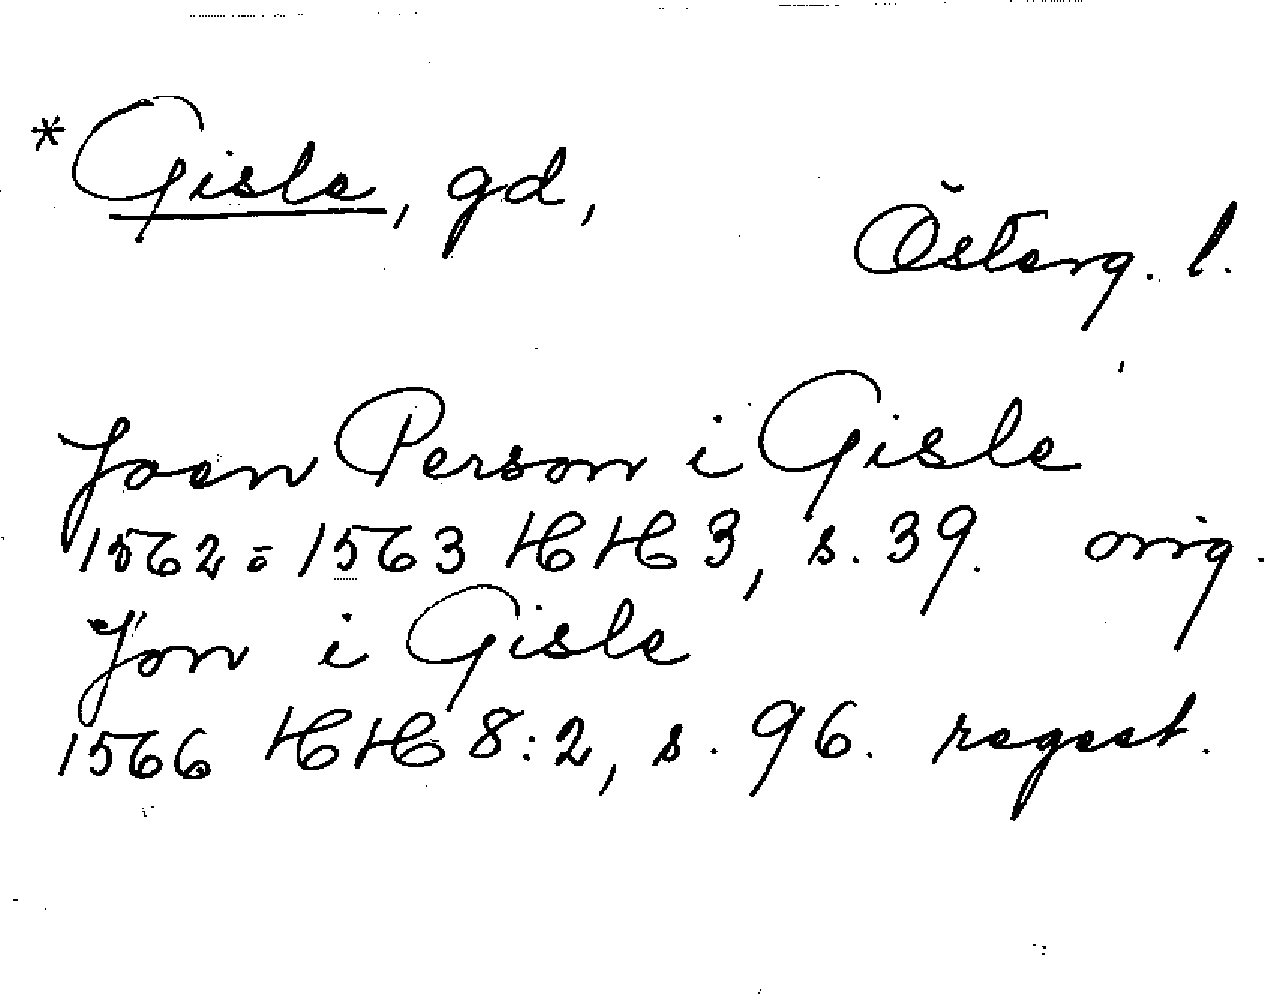 *Gisle, gd,
Österg. l.
Joen Person i Gisle
1562-1563 HH 3, s. 39. orig.
Jon i Gisle
1566 HH 8:2, s. 96. regest.